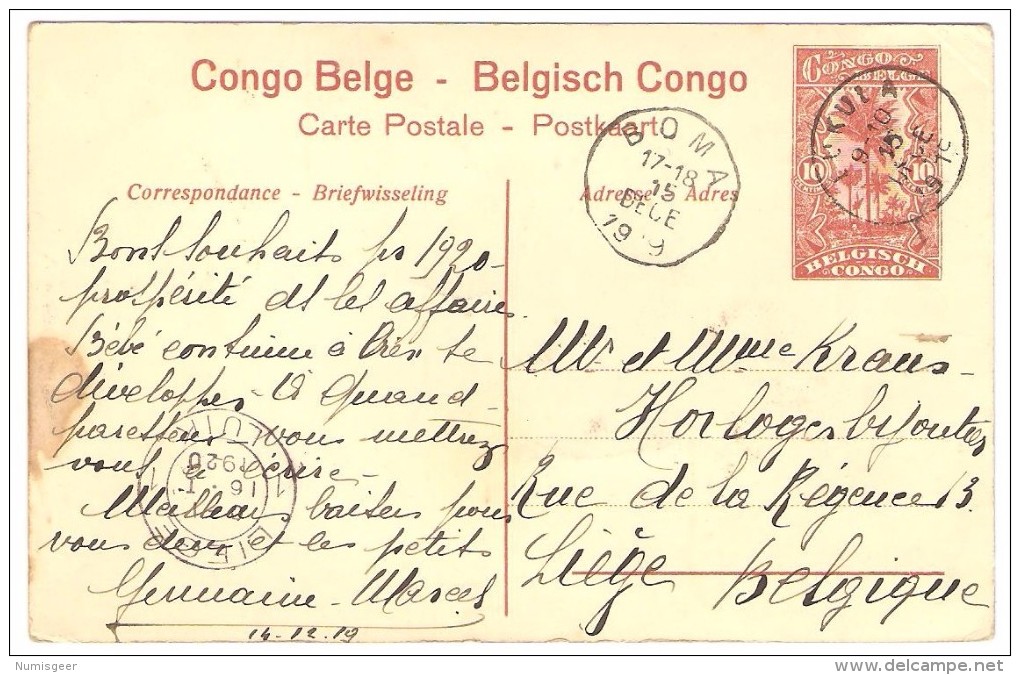 Congo Belge - Belgisch Congo
Carte Postale - Postkaart
Correspondance - Briefwisseling
Adresse - Adres
CONGO BELGE
10 10
BELGISCH CONGO
BOMA
17-18
15
DECE
19 9
9-10
15
DECE
Bons souhaits pr 1920
prospérité ds les affaires
Bébé continue à bien se
développer - Quand
paresseux vous mettrez
vous à écrire -
Meilleurs baisers pour
vous deux et les petits
Germaine - Marcel
14-12-19
LIEGE 1
LUIK 1
16
1920
Mr et Mme Kraus-
Horloger bijoutier
Rue de la Régence 13
Liège Belgique
Numisgeer
delcampe.net